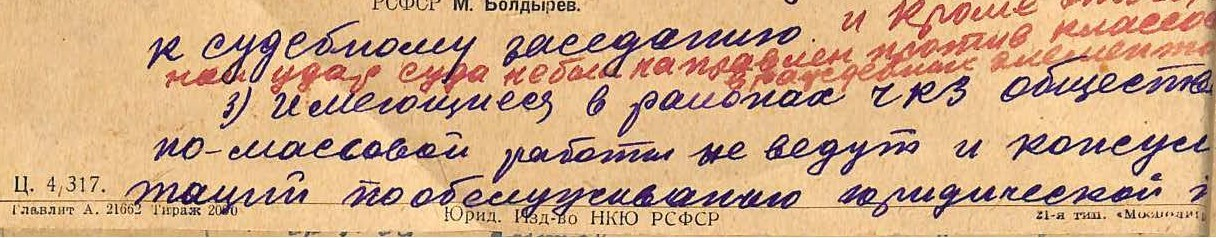 РСФСР М. Болдырев.
к судебному заседанию. и кроме
удар суда не был направлен против классово
враждебных элементов
3) Имеющиеся в районах ЧКЗ обществен
но-массовой работы не ведут и консул
Ц. 4/317. таций по обслуживанию юридической
Главлит А. 21662 Тираж 2000 Юрид. Изд-во НКЮ РСФСР 21-я тип. «Мосполигр